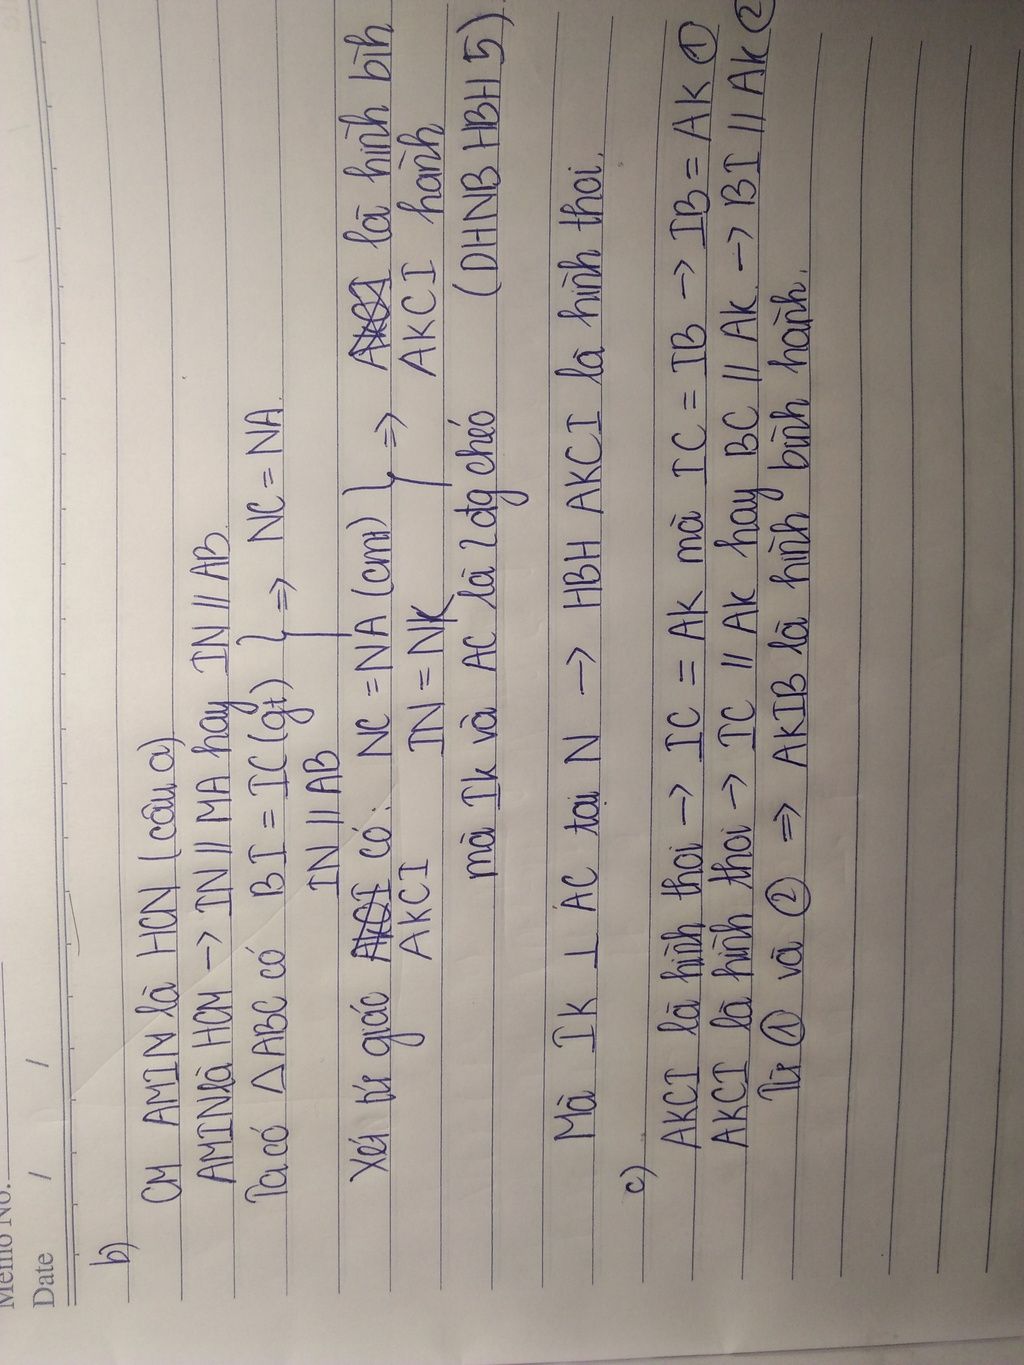 Memo No.
Date / /
b)
CM AMIN là HCN (câu a)
AMIN là HCM → IN // MA hay IN // AB.
Ta có △ABC có BI = IC (gt) } ⇒ NC = NA.
IN // AB
Xét tứ giác AKCI có: NC = NA (cmt) } ⇒ AKCI là hình bìh
AKCI IN = NK AKCI hành
mà IK và AC là 2 đg chéo (DHNB HBH 5)
Mà IK ⊥ AC tại N → HBH AKCI là hình thoi.
c)
AKCI là hình thoi → IC = AK mà IC = IB → IB = AK ①
AKCI là hình thoi → IC // AK hay BC // AK → BI // AK ②
Từ ① và ② ⇒ AKIB là hình bình hành.